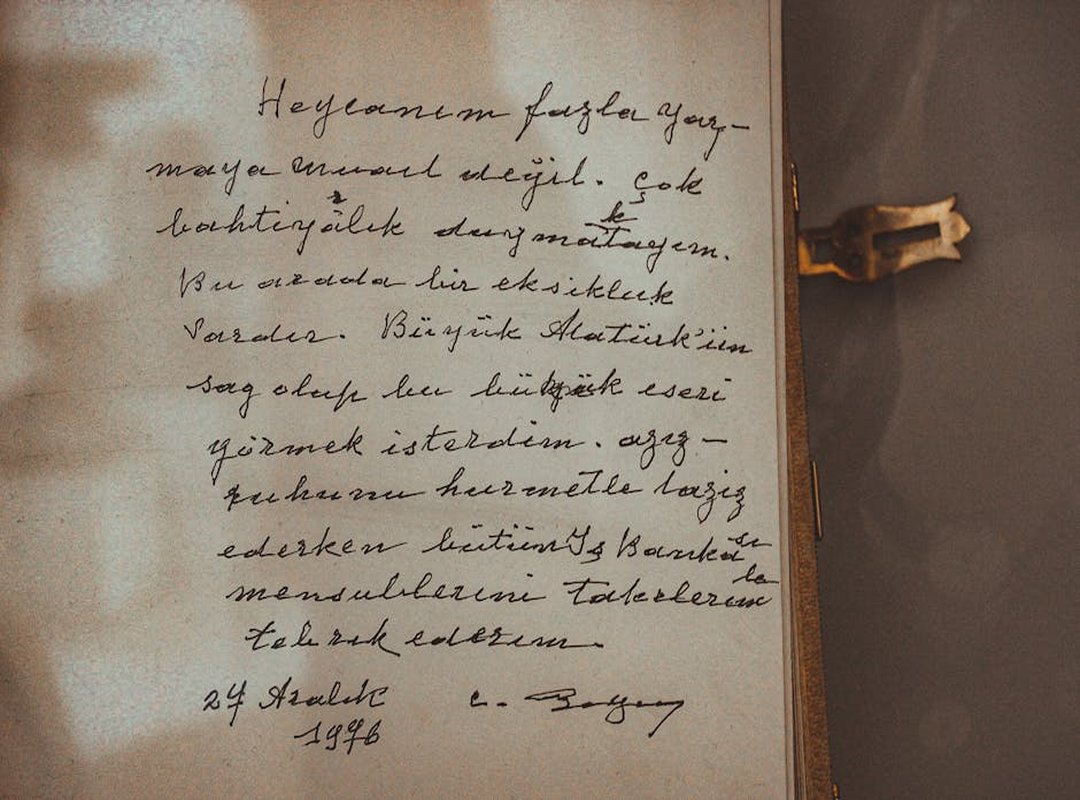 Heycanım fazla yaz-
maya müait değil. Çok
bahtiyârlık duymaktayım.
Bu arada bir eksiklik
vardır. Büyük Atatürk'ün
sag olup bu büyük eseri
görmek isterdim. aziz-
ruhunu hurmetle taziz
ederken bütün İş Bankası
mensublerini takdirlerimle
tebrik ederim.
24 Aralık C. Bayar
1976